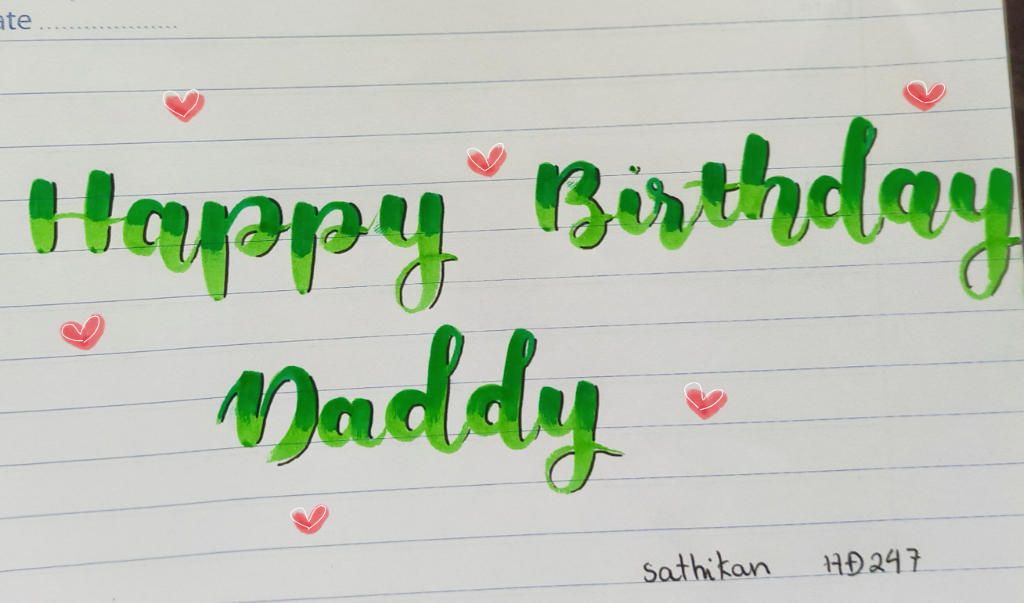 ate ..................
Happy Birthday
Daddy
sathikan HD247